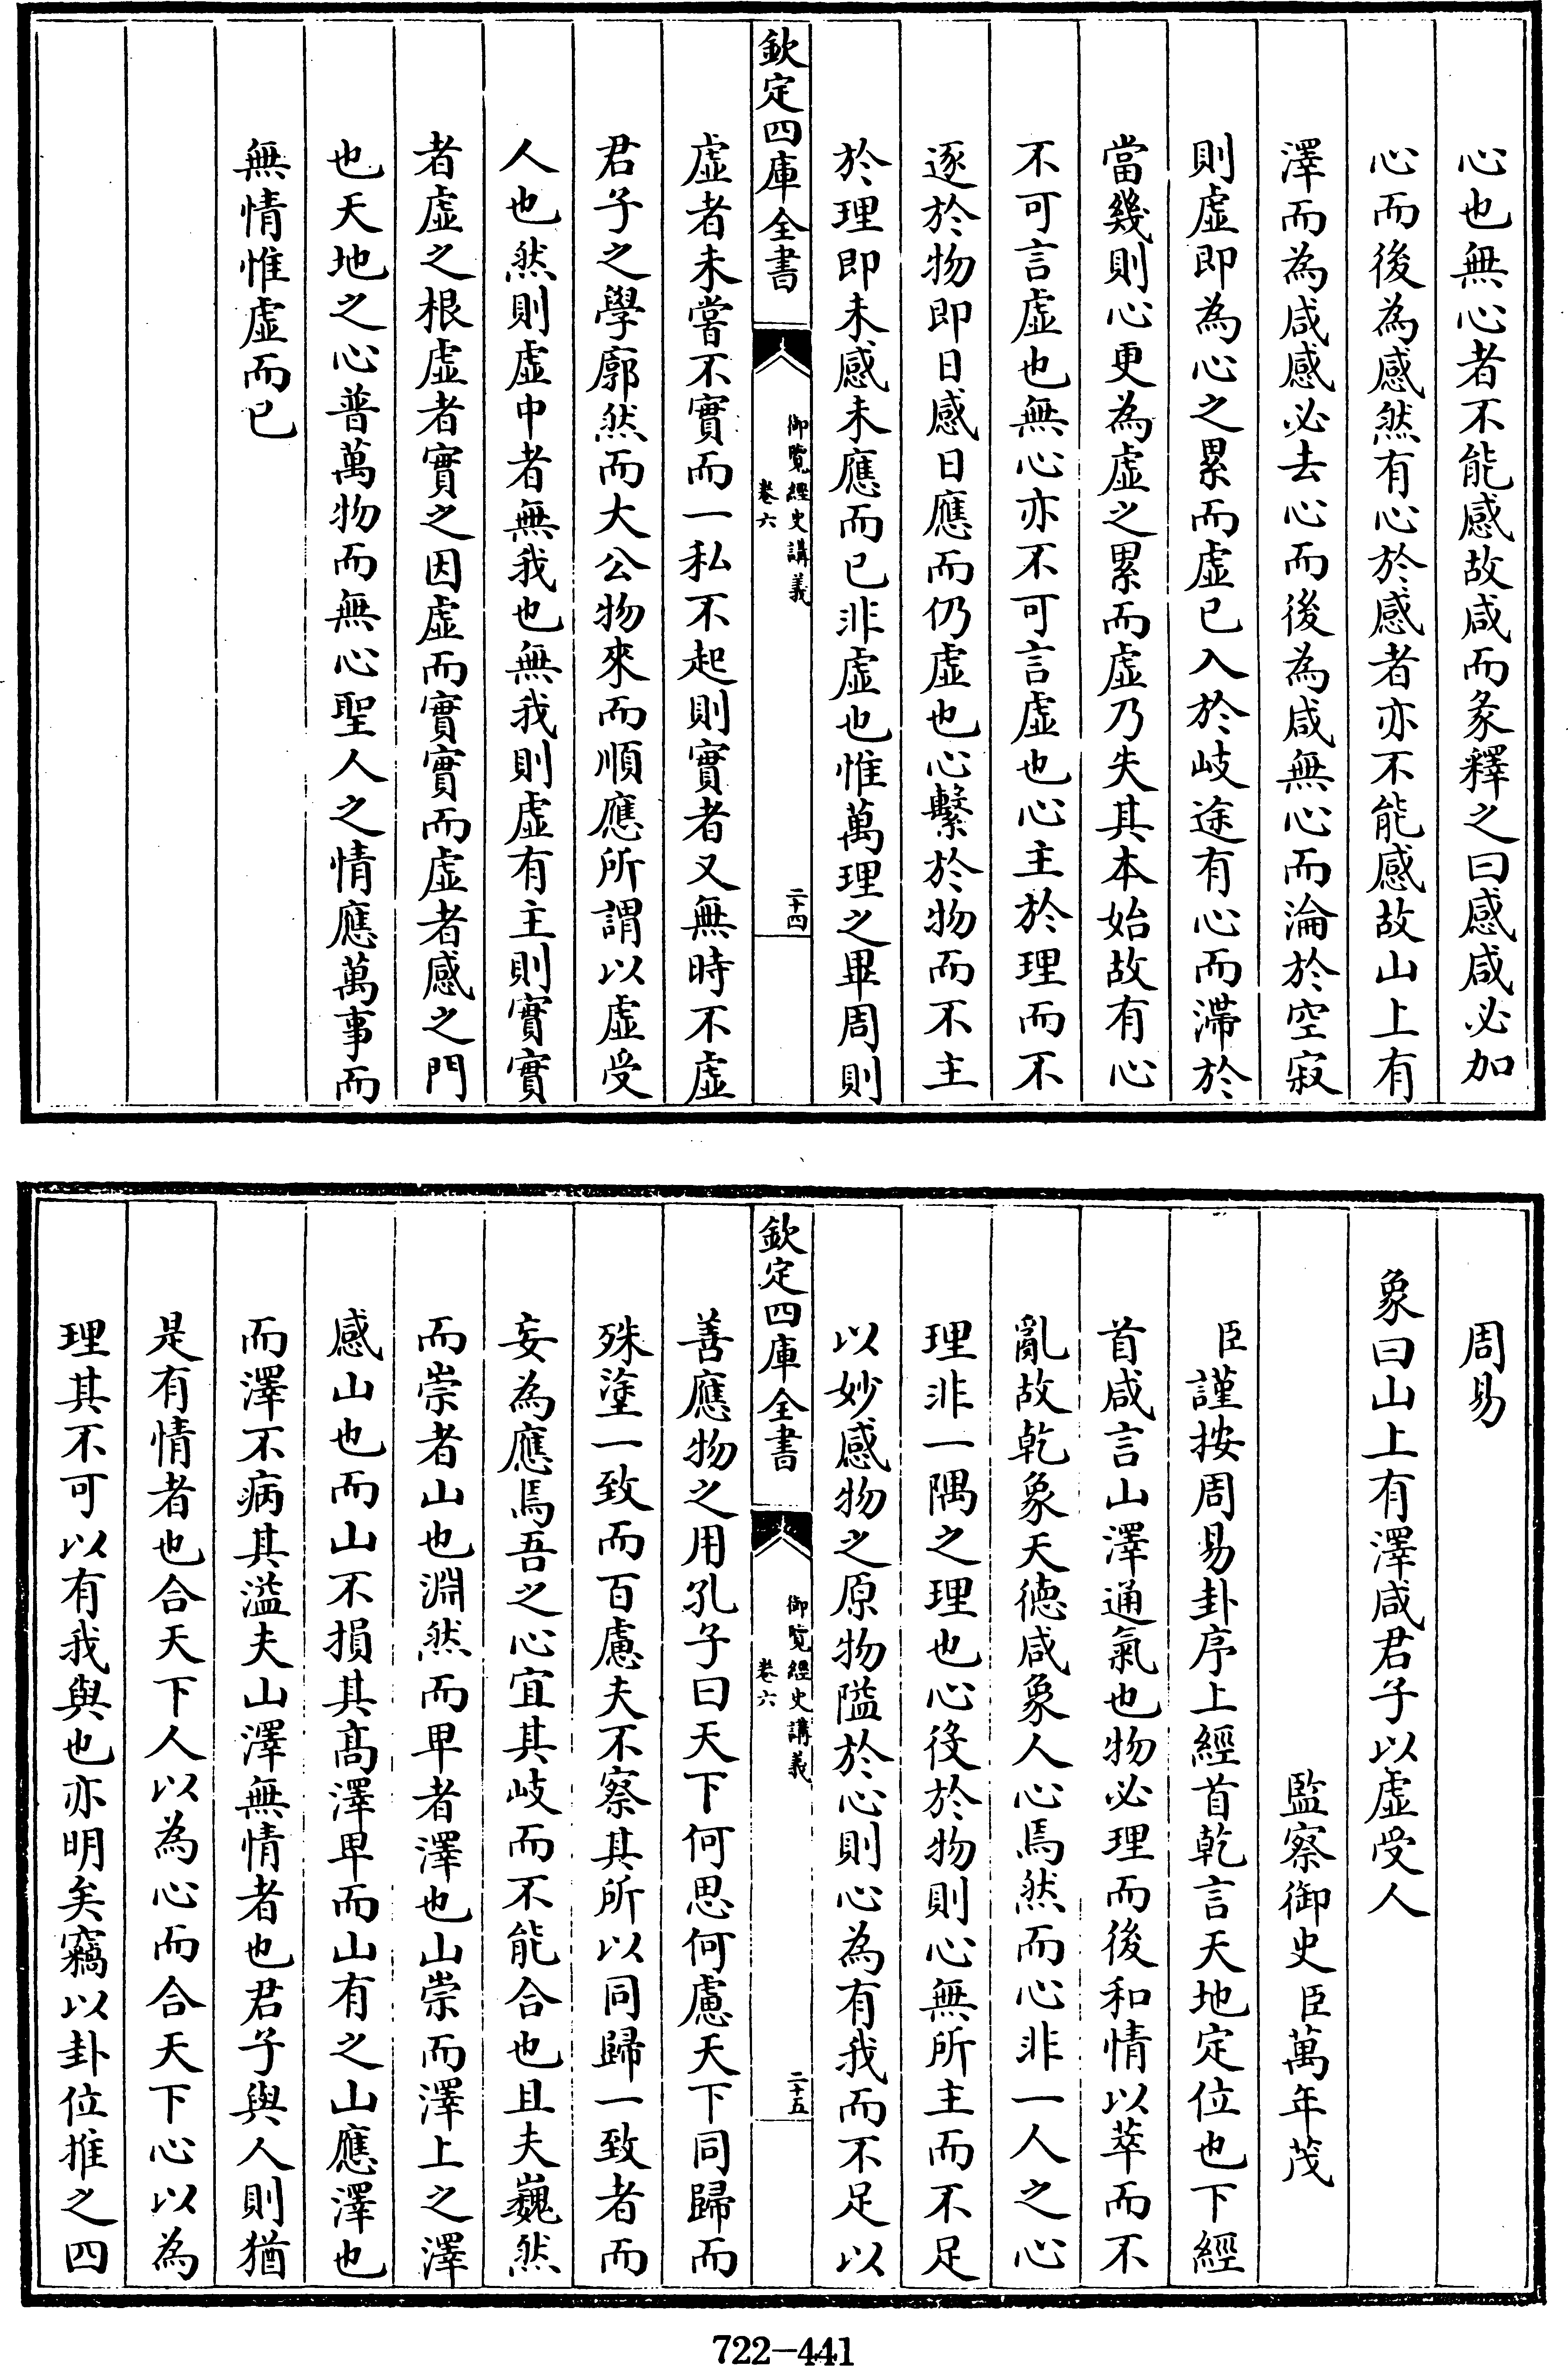 心也無心者不能感故咸而彖釋之曰感咸必加
心而後為感然有心於感者亦不能感故山上有
澤而為咸感必去心而後為咸無心而淪於空寂
則虛即為心之累而虛已入於岐途有心而滯於
當幾則心更為虛之累而虛乃失其本始故有心
不可言虛也無心亦不可言虛也心主於理而不
逐於物即日感日應而仍虛也心繫於物而不主
於理即未感未應而已非虛也惟萬理之畢周則
欽定四庫全書
御覽經史講義
卷六
二十四
虛者未嘗不實而一私不起則實者又無時不虛
君子之學廓然而大公物來而順應所謂以虛受
人也然則虛中者無我也無我則虛有主則實實
者虛之根虛者實之因虛而實實而虛者感之門
也天地之心普萬物而無心聖人之情應萬事而
無情惟虛而已
周易
象曰山上有澤咸君子以虛受人
監察御史臣萬年茂
臣謹按周易卦序上經首乾言天地定位也下經
首咸言山澤通氣也物必理而後和情以萃而不
亂故乾象天德咸象人心焉然而心非一人之心
理非一隅之理也心役於物則心無所主而不足
以妙感物之原物隘於心則心為有我而不足以
欽定四庫全書
御覽經史講義
卷六
二十五
善應物之用孔子曰天下何思何慮天下同歸而
殊塗一致而百慮夫不察其所以同歸一致者而
妄為應焉吾之心宜其岐而不能合也且夫巍然
而崇者山也淵然而卑者澤也山崇而澤上之澤
感山也而山不損其高澤卑而山有之山應澤也
而澤不病其溢夫山澤無情者也君子與人則猶
是有情者也合天下人以為心而合天下心以為
理其不可以有我與也亦明矣竊以卦位推之四
722-441